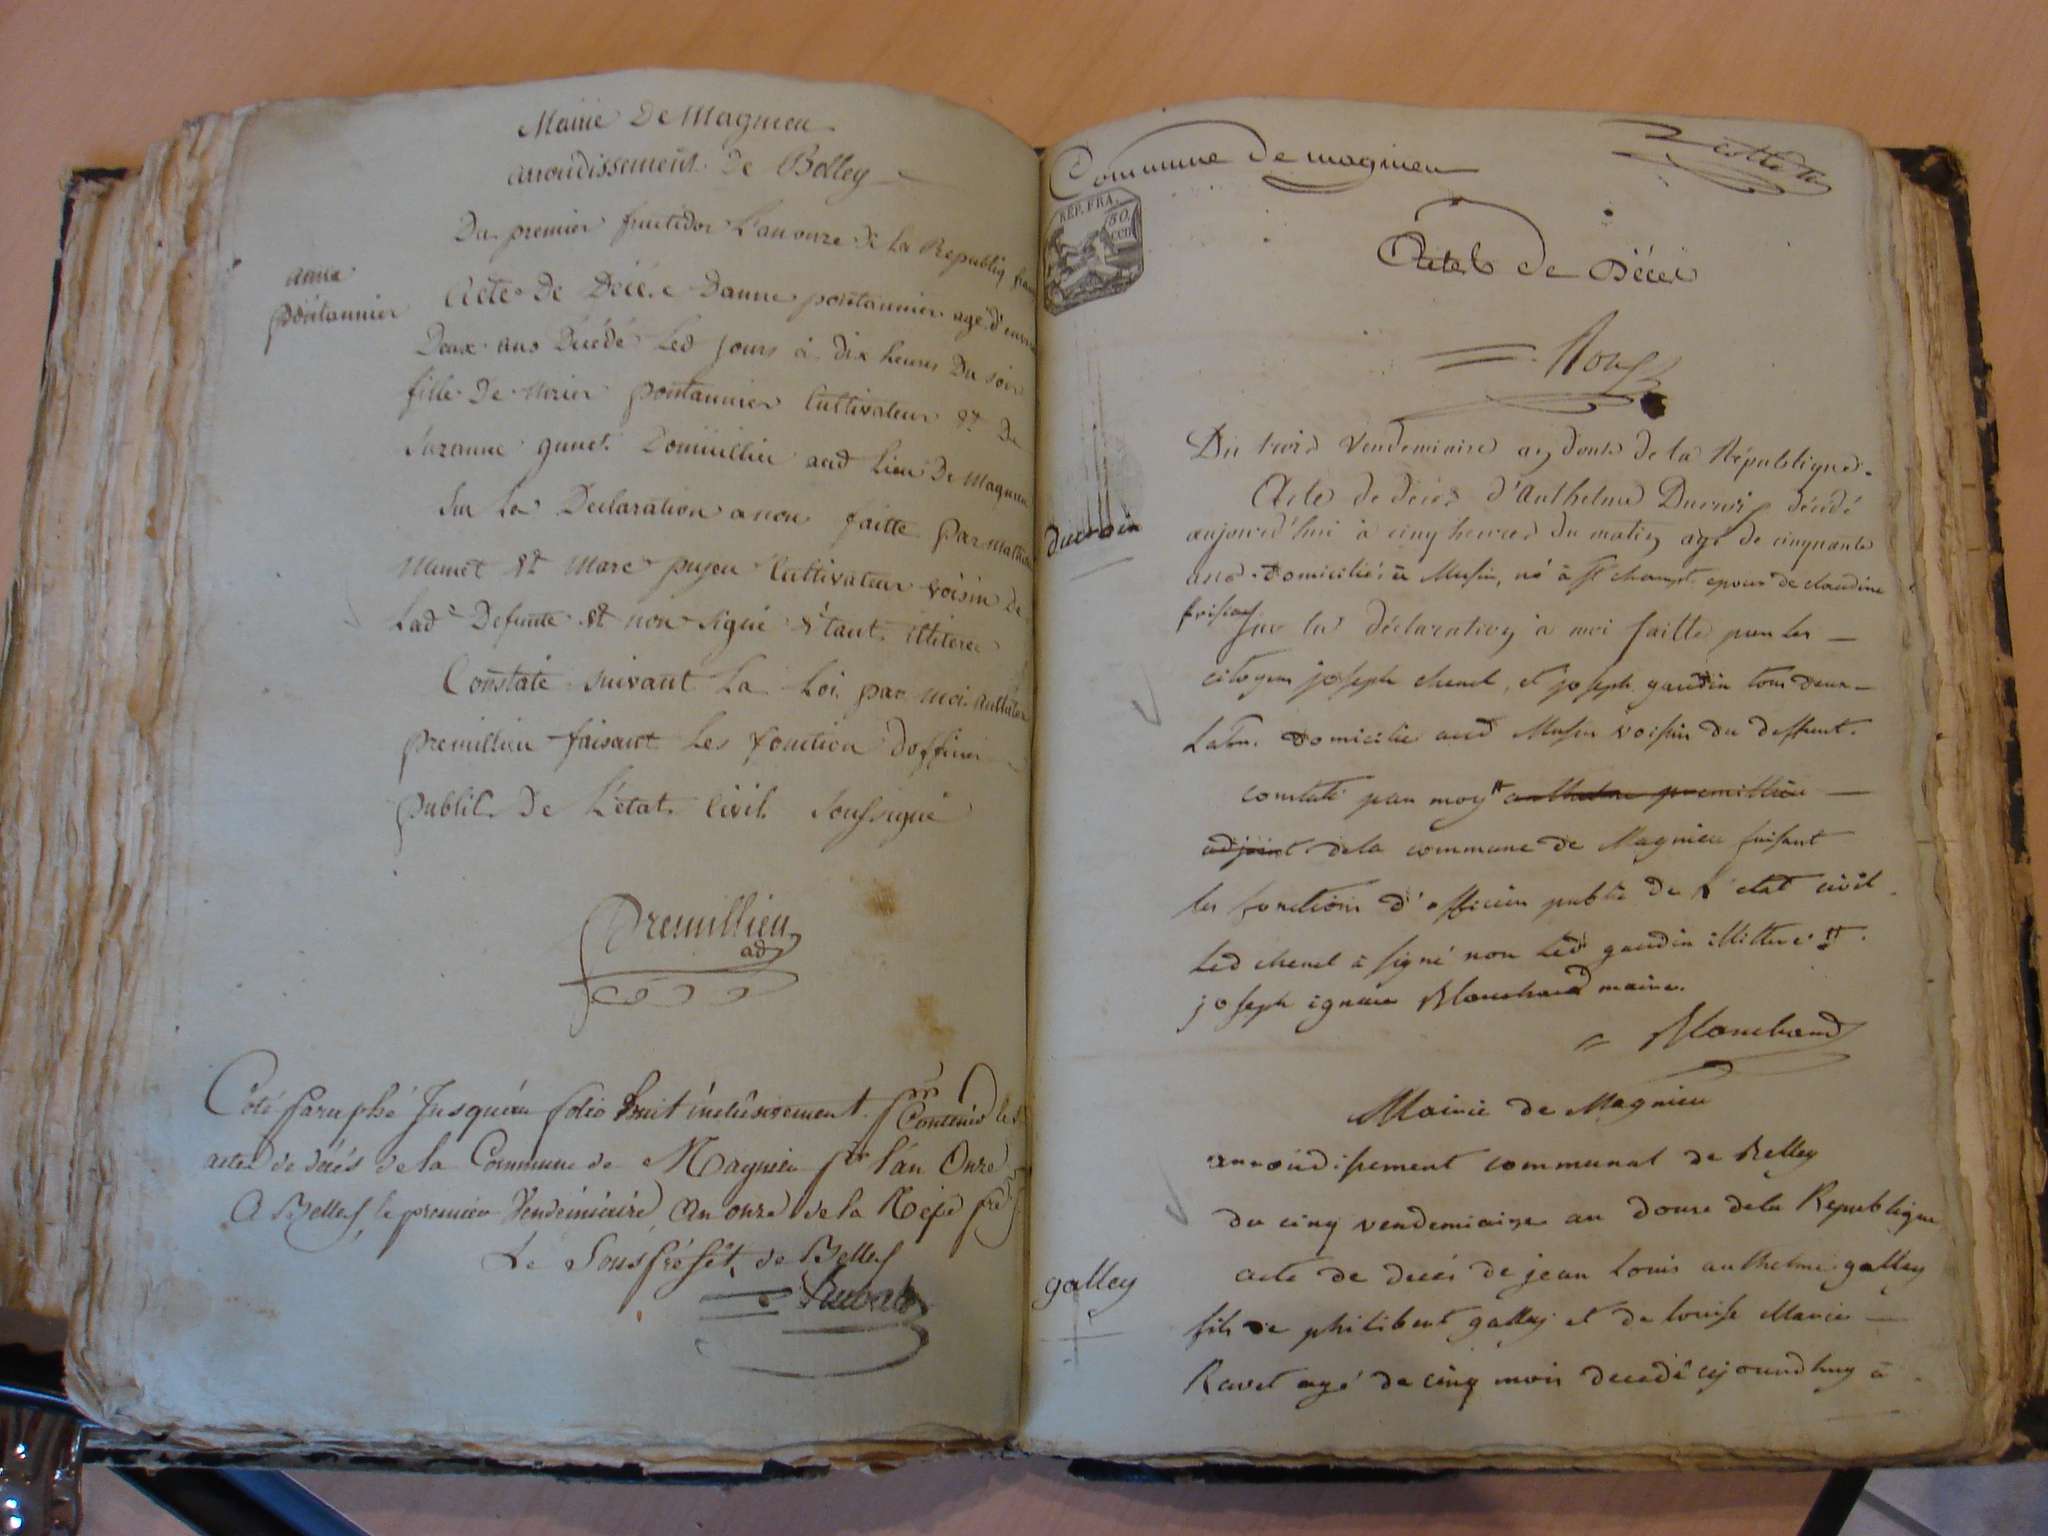 Mairie De Magnieu
arrondissement de Belley
Du premier fructidor L'an onze de La Republiq
anne
pontannier
Acte De Décé e Danne pontannier agé d'
Deux ans Décédé Led jours à dix heures Du soir
fille De pontannier Cultivateur Et De
Suzanne Domicillier aud Lieu De Magnieu
Sur La Declaration a nou faitte Par
Mamet Et Marc pujeu Cultivateur voisin de
Lad e Defunte Et non Signé Etant illiteré
Constaté suivant La Loi par moi
premillieu faisant Les fonction Dofficier
public De L'état Civil Soussigné
Premillieu
ad
Coté Paraphé Jusqu'au folio huit inclusivement pr Contenir les
actes de décés de la Commune de Magnieu pr l'an Onze
A Belley, le premier Vendémiaire, an onze de la Rép. fre
Le Sous Préfet de Belley
Commune de magnieu
REP. FRA.
50
CEN
Actes de Décés
Du trois Vendemiaire an douze de la République.
Acte de décés d'Anthelme décédé
aujourd'hui à cinq heures du matin agé de cinquante
ans domicilié à Musin, né à St champt epoux de claudine
Sur la déclaration à moi faitte par les
citoyens joseph chenet, et joseph gaudin tous deux
Lab. domicilié aud Musin voisin du deffunt.
constaté par moy tt anthelme premillieu
adjoint de la commune de Magnieu faisant
les fonctions d'officier public de l'etat civil
Led chenet à signé non Led gaudin illitteré tt
joseph ignace Blanchard maire.
Blanchard
Mairie de Magnieu
arrondissement communal de Belley
du cinq vendemiaire an douze dela Republique
galley
acte de décés de jean Louis anthelme galley
fils de philibert galley et de louise Marie
Ravet agé de cinq mois decedé ajourdhuy à